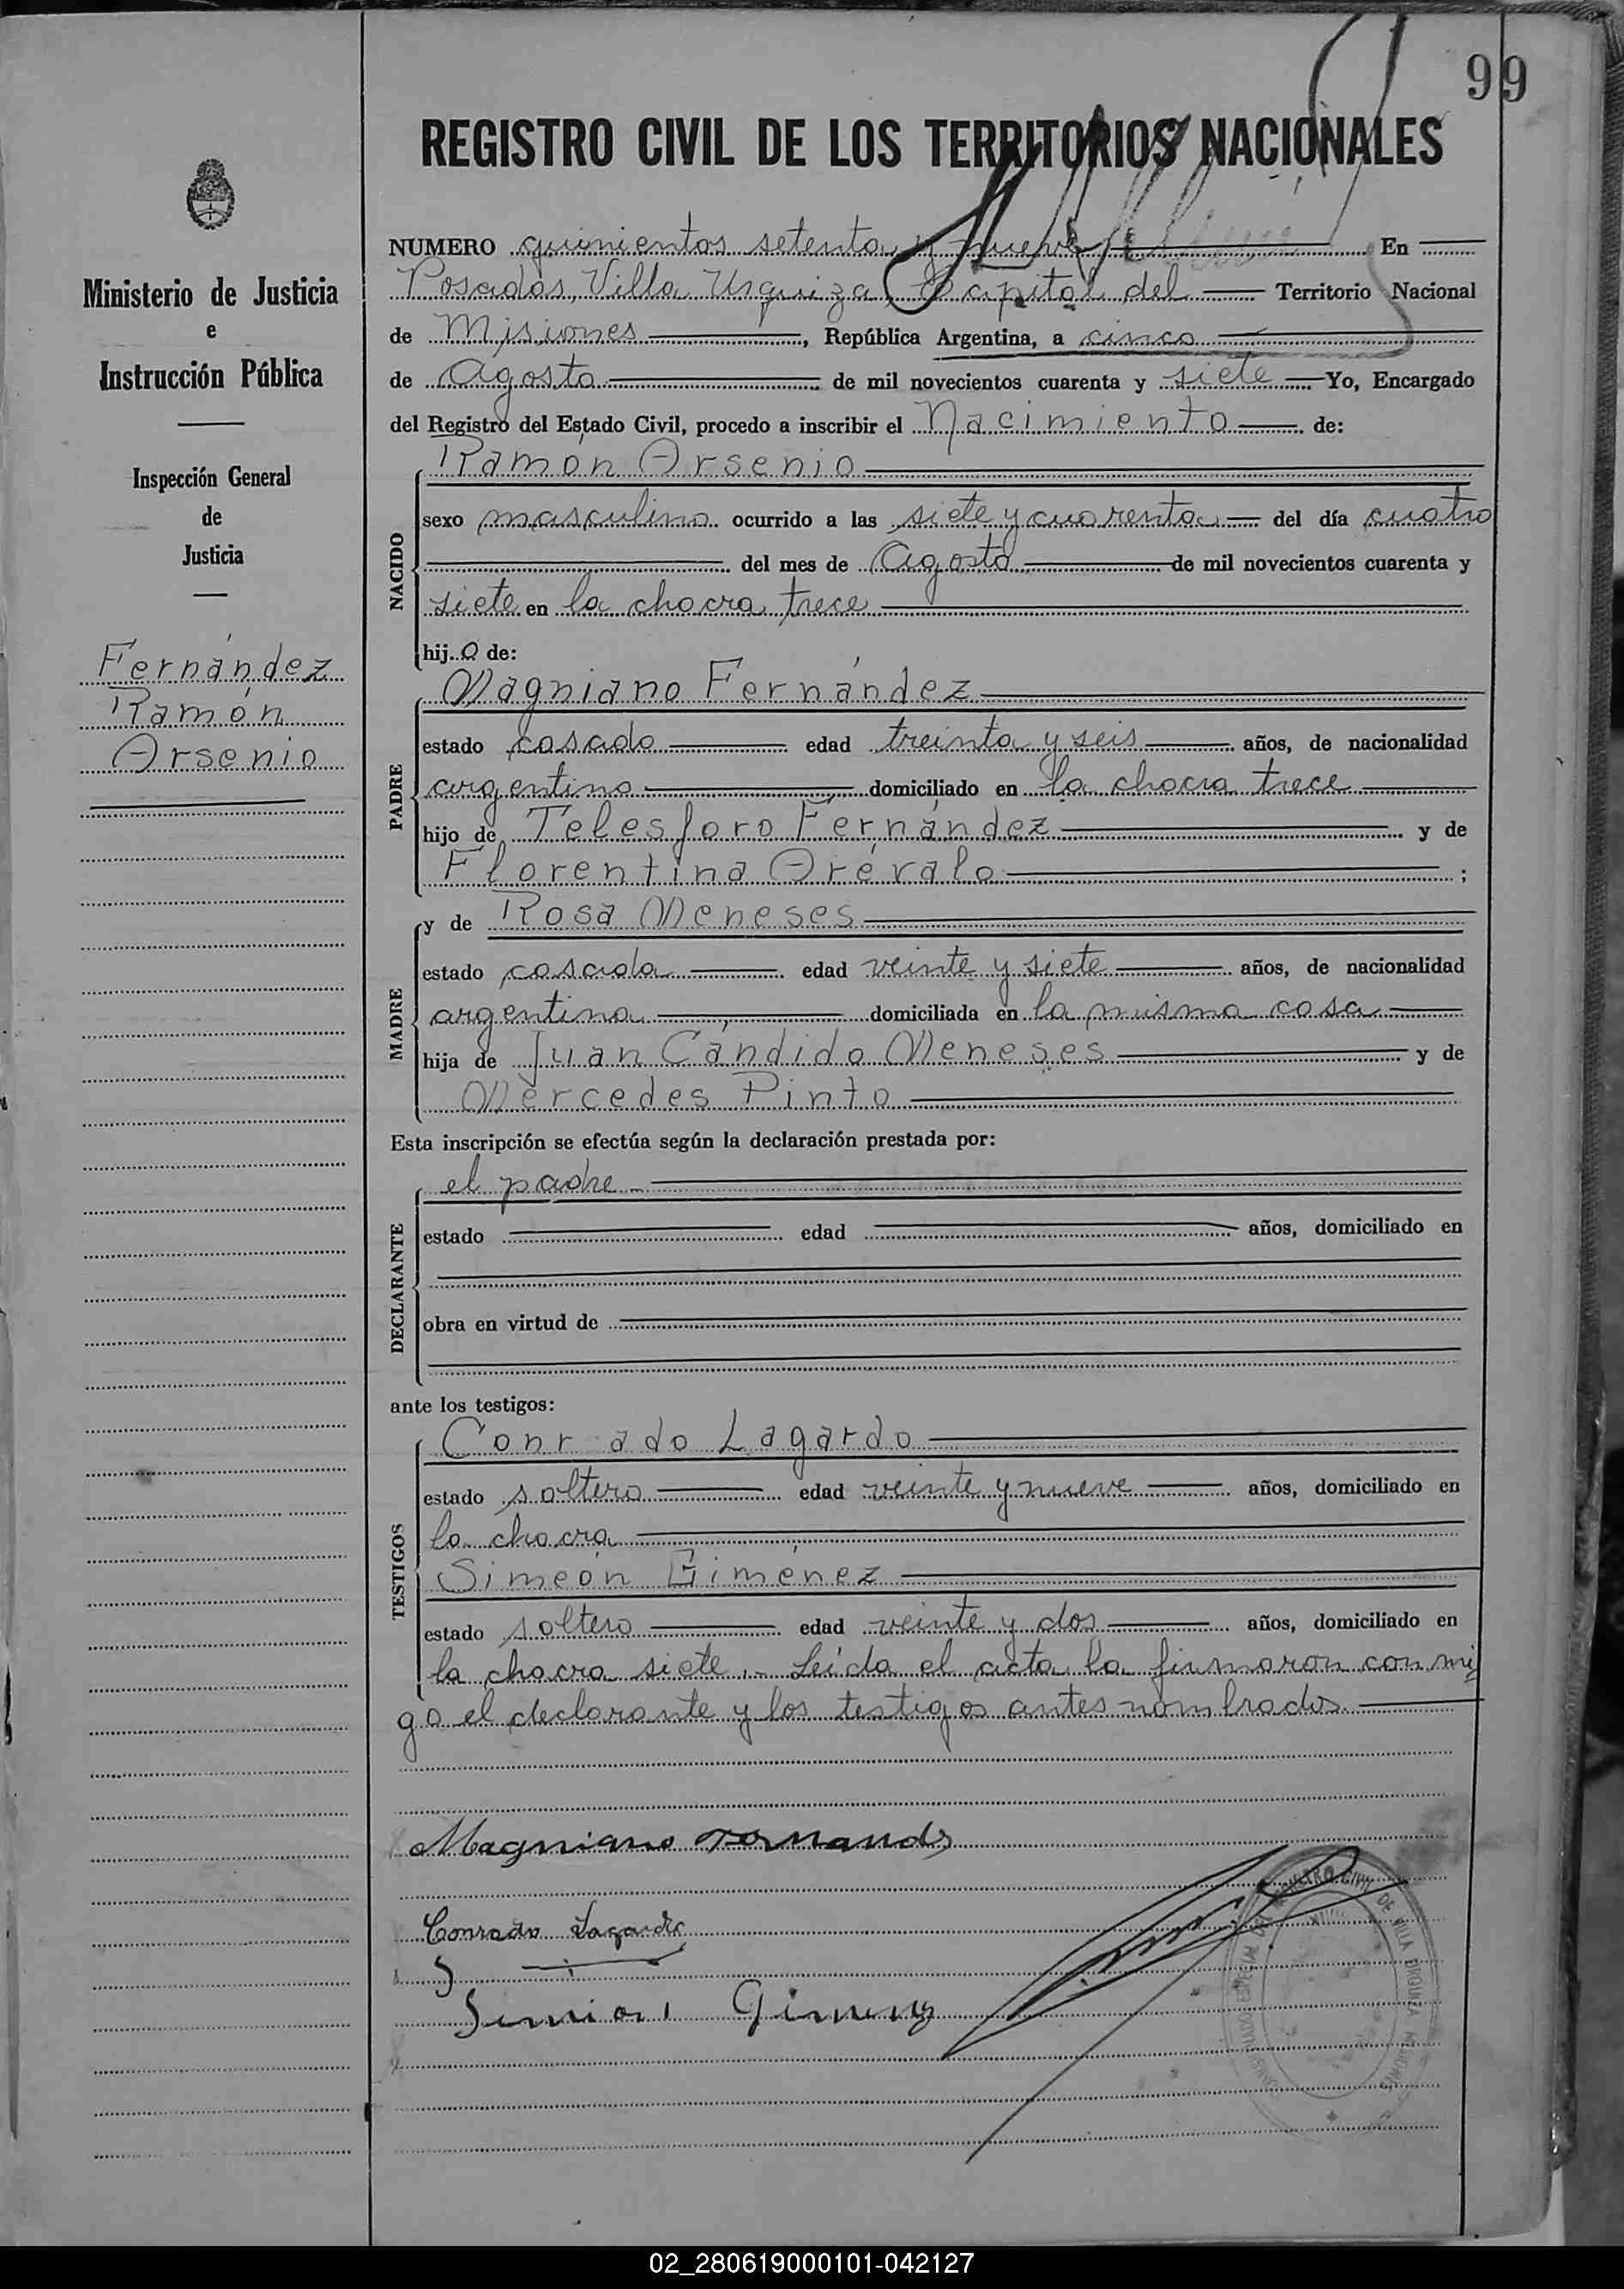 99
REGISTRO CIVIL DE LOS TERRITORIOS NACIONALES
Ministerio de Justicia
e
Instrucción Pública
Inspección General
de
Justicia
Fernández
Ramón
Arsenio
NUMERO quinientos setenta y nueve En
Posadas, Villa Urquiza, Capital del Territorio Nacional
de Misiones, República Argentina, a cinco
de Agosto de mil novecientos cuarenta y siete Yo, Encargado
del Registro del Estado Civil, procedo a inscribir el Nacimiento de:
NACIDO
Ramón Arsenio
sexo masculino ocurrido a las siete y cuarenta del día cuatro
del mes de Agosto de mil novecientos cuarenta y
siete en la chacra trece
hijo de:
PADRE
Magniano Fernández
estado casado edad treinta y seis años, de nacionalidad
argentino domiciliado en la chacra trece
hijo de Telesforo Fernández y de
Florentina Arévalo ;
MADRE
y de Rosa Meneses
estado casada edad veinte y siete años, de nacionalidad
argentina domiciliada en la misma casa
hija de Juan Cándido Meneses y de
Mercedes Pinto
Esta inscripción se efectúa según la declaración prestada por:
DECLARANTE
el padre
estado edad años, domiciliado en
obra en virtud de
ante los testigos:
TESTIGOS
Conrado Lagardo
estado soltero edad veinte y nueve años, domiciliado en
la chacra
Simeón Giménez
estado soltero edad veinte y dos años, domiciliado en
la chacra siete.- Leída el acta la firmaron conmi
go el declarante y los testigos antes nombrados.
Magniano Fernands
Conrado Lagardo
Simion Gimenez
REGISTRO CIVIL DE VILLA URQUIZA MISIONES
02_280619000101-042127